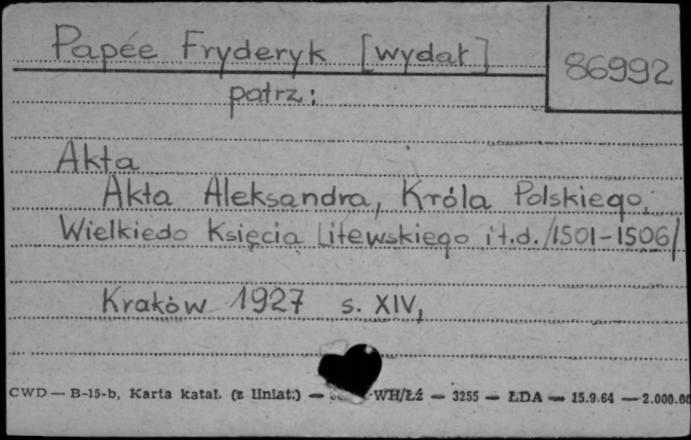 Papée Fryderyk [wydał]
86992
patrz:
Akta
Akta Aleksandra, Króla Polskiego,
Wielkiedo Księcia Litewskiego i t.d. /1501-1506/
Kraków 1927 s. XIV,
CWD — B-15-b, Karta katal. (z liniat.) — WH/Łź — 3255 — ŁDA — 15.9.64 — 2.000.00